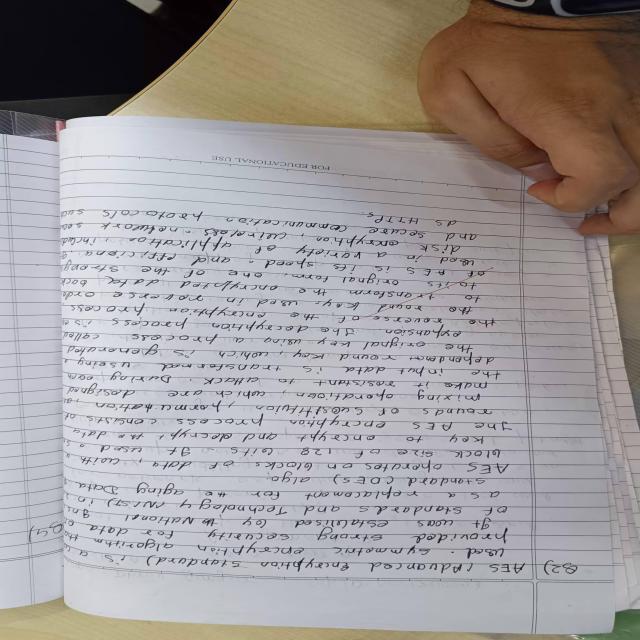 Q2) AES (Advanced Encryption Standard) is a
used. symmetric encryption algorithm th
provided strong security for data
It was establised by National
of Standards and Technology (NIST) in
as a replacement for the aging Data
standard (DES) algo.
AES operates on blocks of data with
block size of 128 bits. It used
key to encrypt and decrypt the data
The AES encryption process consists of
rounds of substituion, permutation, an
mixing operation, which are designed
make it resistant to attack. During each
the input data is transformed useing
dependent round key, which is generated
the original key using a process called
expansion. The decryption process is
the reverse of the encryption process
the round keys used in reverse orde
to transform the encrypted data back
to its original form. one of the streng
of AES is its speed and efficiency
used in a variety of application, includ
disk encryption, wireless network sec
and secure communication protocols suc
as HTTPs.
FOR EDUCATIONAL USE
Q4)